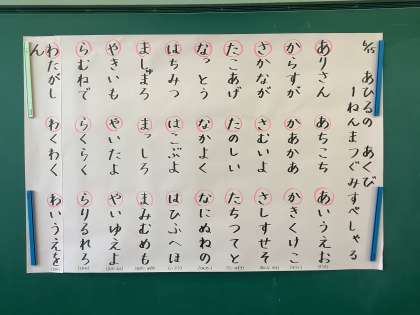 6/15 あひるの あくび
一ねんまつぐみすぺしゃる
ありさん あちこち あいうえお
からすが かあかあ かきくけこ
さかなが さむいよ さしすせそ
たこあげ たのしい たちつてと
なっとう なかよく なにぬねの
はちみつ はこぶよ はひふへほ
ましゅまろ まっしろ まみむめも
やきいも やいたよ やいゆえよ
らむねで らくらく らりるれろ
わたがし わくわく わいうえを
ん